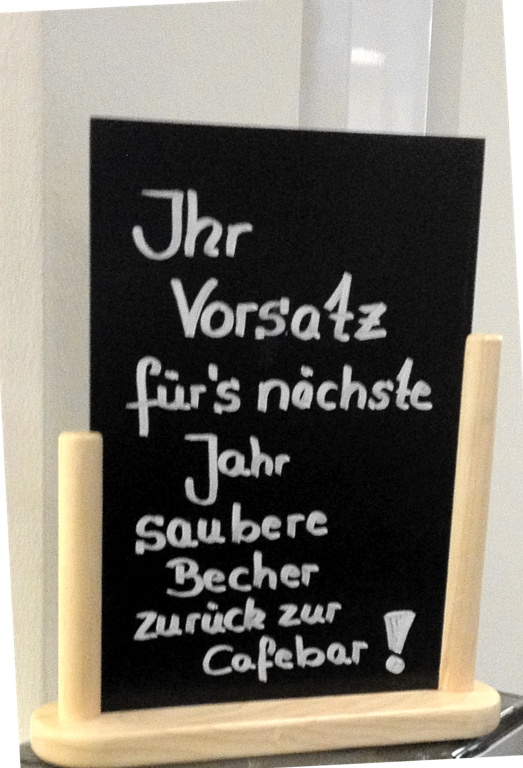 Ihr
Vorsatz
für's nächste
Jahr
saubere
Becher
zurück zur
Cafebar !